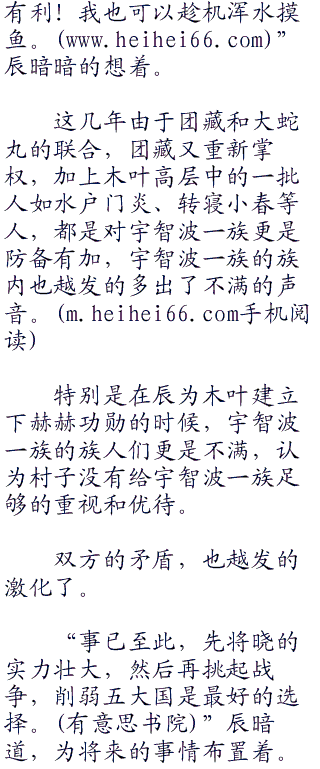 有利！我也可以趁机浑水摸
鱼。(www.heihei66.com)”
辰暗暗的想着。
这几年由于团藏和大蛇
丸的联合，团藏又重新掌
权，加上木叶高层中的一批
人如水户门炎、转寝小春等
人，都是对宇智波一族更是
防备有加，宇智波一族的族
内也越发的多出了不满的声
音。(m.heihei66.com手机阅
读)
特别是在辰为木叶建立
下赫赫功勋的时候，宇智波
一族的族人们更是不满，认
为村子没有给宇智波一族足
够的重视和优待。
双方的矛盾，也越发的
激化了。
“事已至此，先将晓的
实力壮大，然后再挑起战
争，削弱五大国是最好的选
择。(有意思书院)”辰暗
道，为将来的事情布置着。